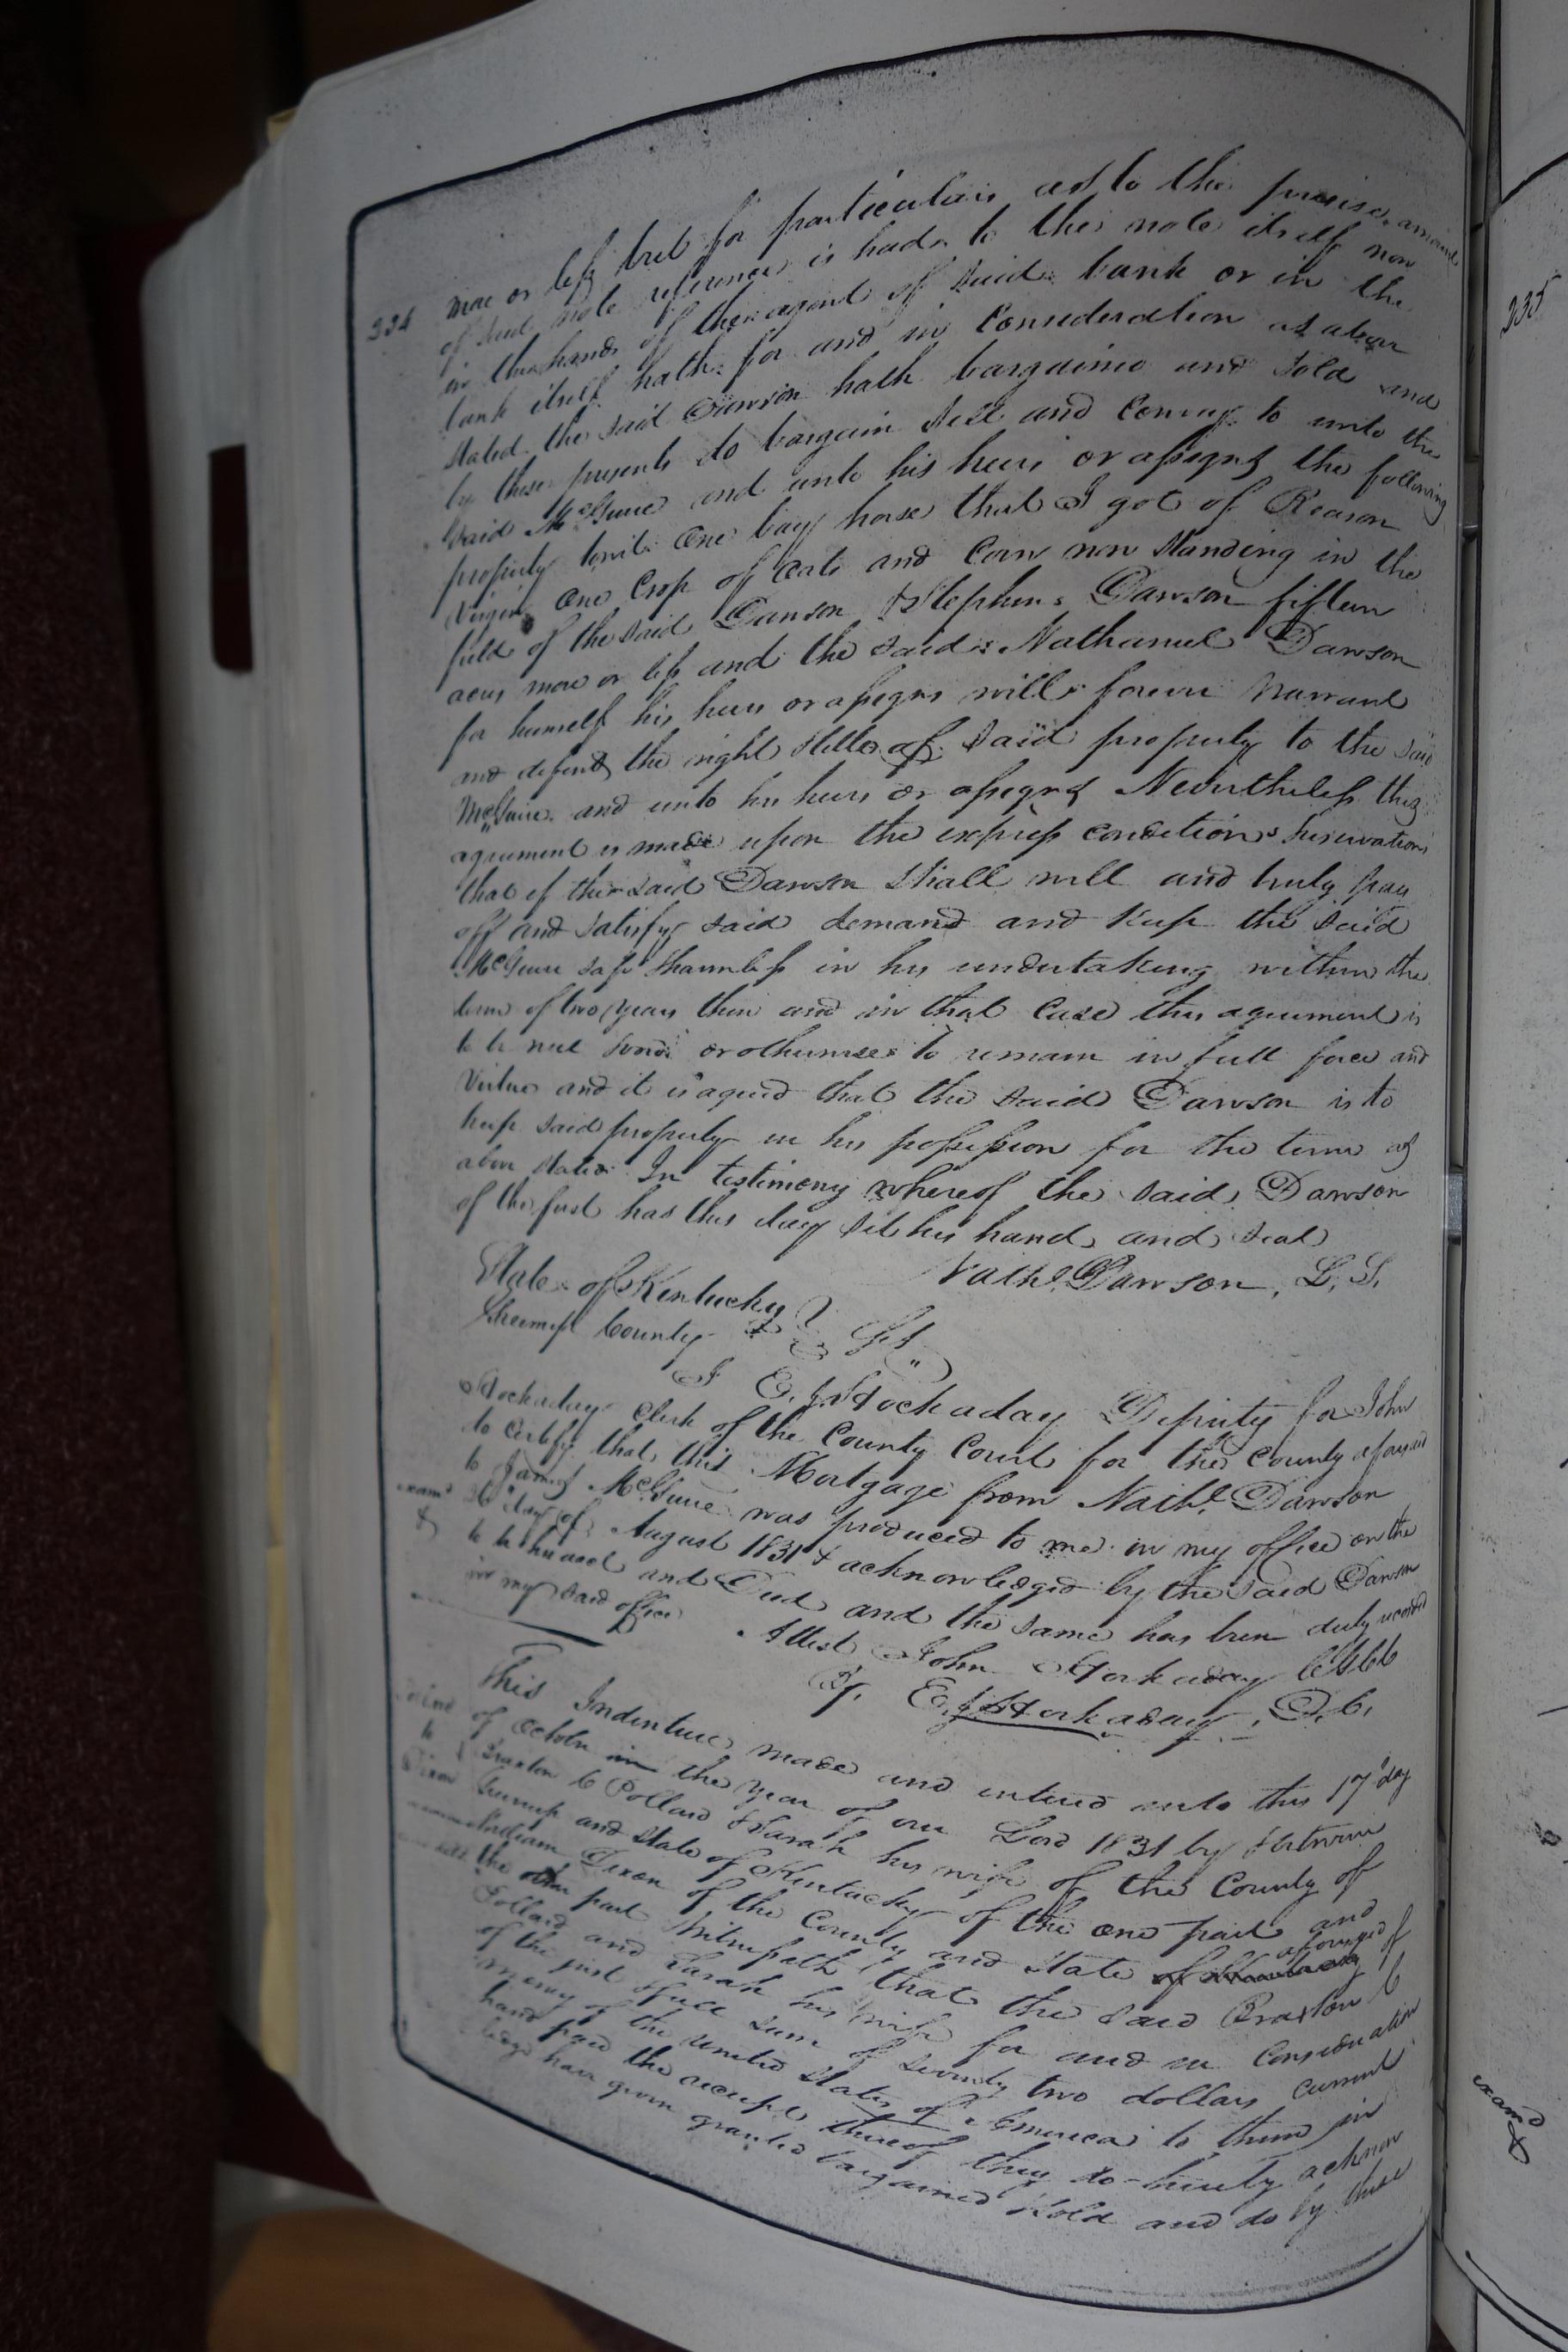 234
more or less but for particulars as to the precise amount
of said note reference is had to the note itself now
in the hands of the agent of said bank or in the
bank itself hath for and in Consideration as above
Stated the said Dawson hath bargained and Sold and
by these presents do bargain Sell and Convey to unto the
Said McGuire and unto his heirs or assigns the following
property towit One bay horse that I got of Reason
Virgin One Crop of Oats and Corn now Standing in the
field of the said Dawson & Stephen Dawson fifteen
acres more or less and the said Nathaniel Dawson
for himself his heirs or assigns will forever Warrant
and defend the right title of Said property to the said
McGuire and unto his heirs or assigns Nevertheless this
agreement is made upon the express condition & reservation
that if the said Dawson Shall well and truly pay
off and Satisfy said demand and Keep the said
McGuire safe & harmless in his undertaking within the
term of two years then and in that Case this agreement is
to be null & void or otherwise to remain in full force and
Virtue and it is agreed that the said Dawson is to
keep said property in his possession for the term as
above stated In testimony whereof the said Dawson
of the first has this day set his hand and seal
Nathl. Dawson, L.S.
State of Kentucky
Greenup County Sct
I E. Hockaday Deputy for John
Hockaday Clerk of the County Court for the County aforesaid
to certify that this Mortgage from Nathl Dawson
to James McGuire was produced to me in my office on the
examd
day of August 1831 & acknowledged by the said Dawson
to be his act and Deed and the same has been duly recorded
in my said office
Attest John Hockaday
By E. Hockaday, D.C.
This Indenture made and entered into this 17th day
of October in the year of our Lord 1831 by & between
to
Braxton C Pollard & Sarah his wife of the County of
Dixon
Greenup and State of Kentucky of the one part and
William Dixon of the County and State aforesaid of
the other part Witnesseth that the said Braxton C
Pollard and Sarah his wife for and in Consideration
of the just & full sum of Seventy two dollars current
money of the united States of America to them in
hand paid the receipt thereof they do hereby acknow
ledge have given granted bargained & Sold and do by these
235
examd